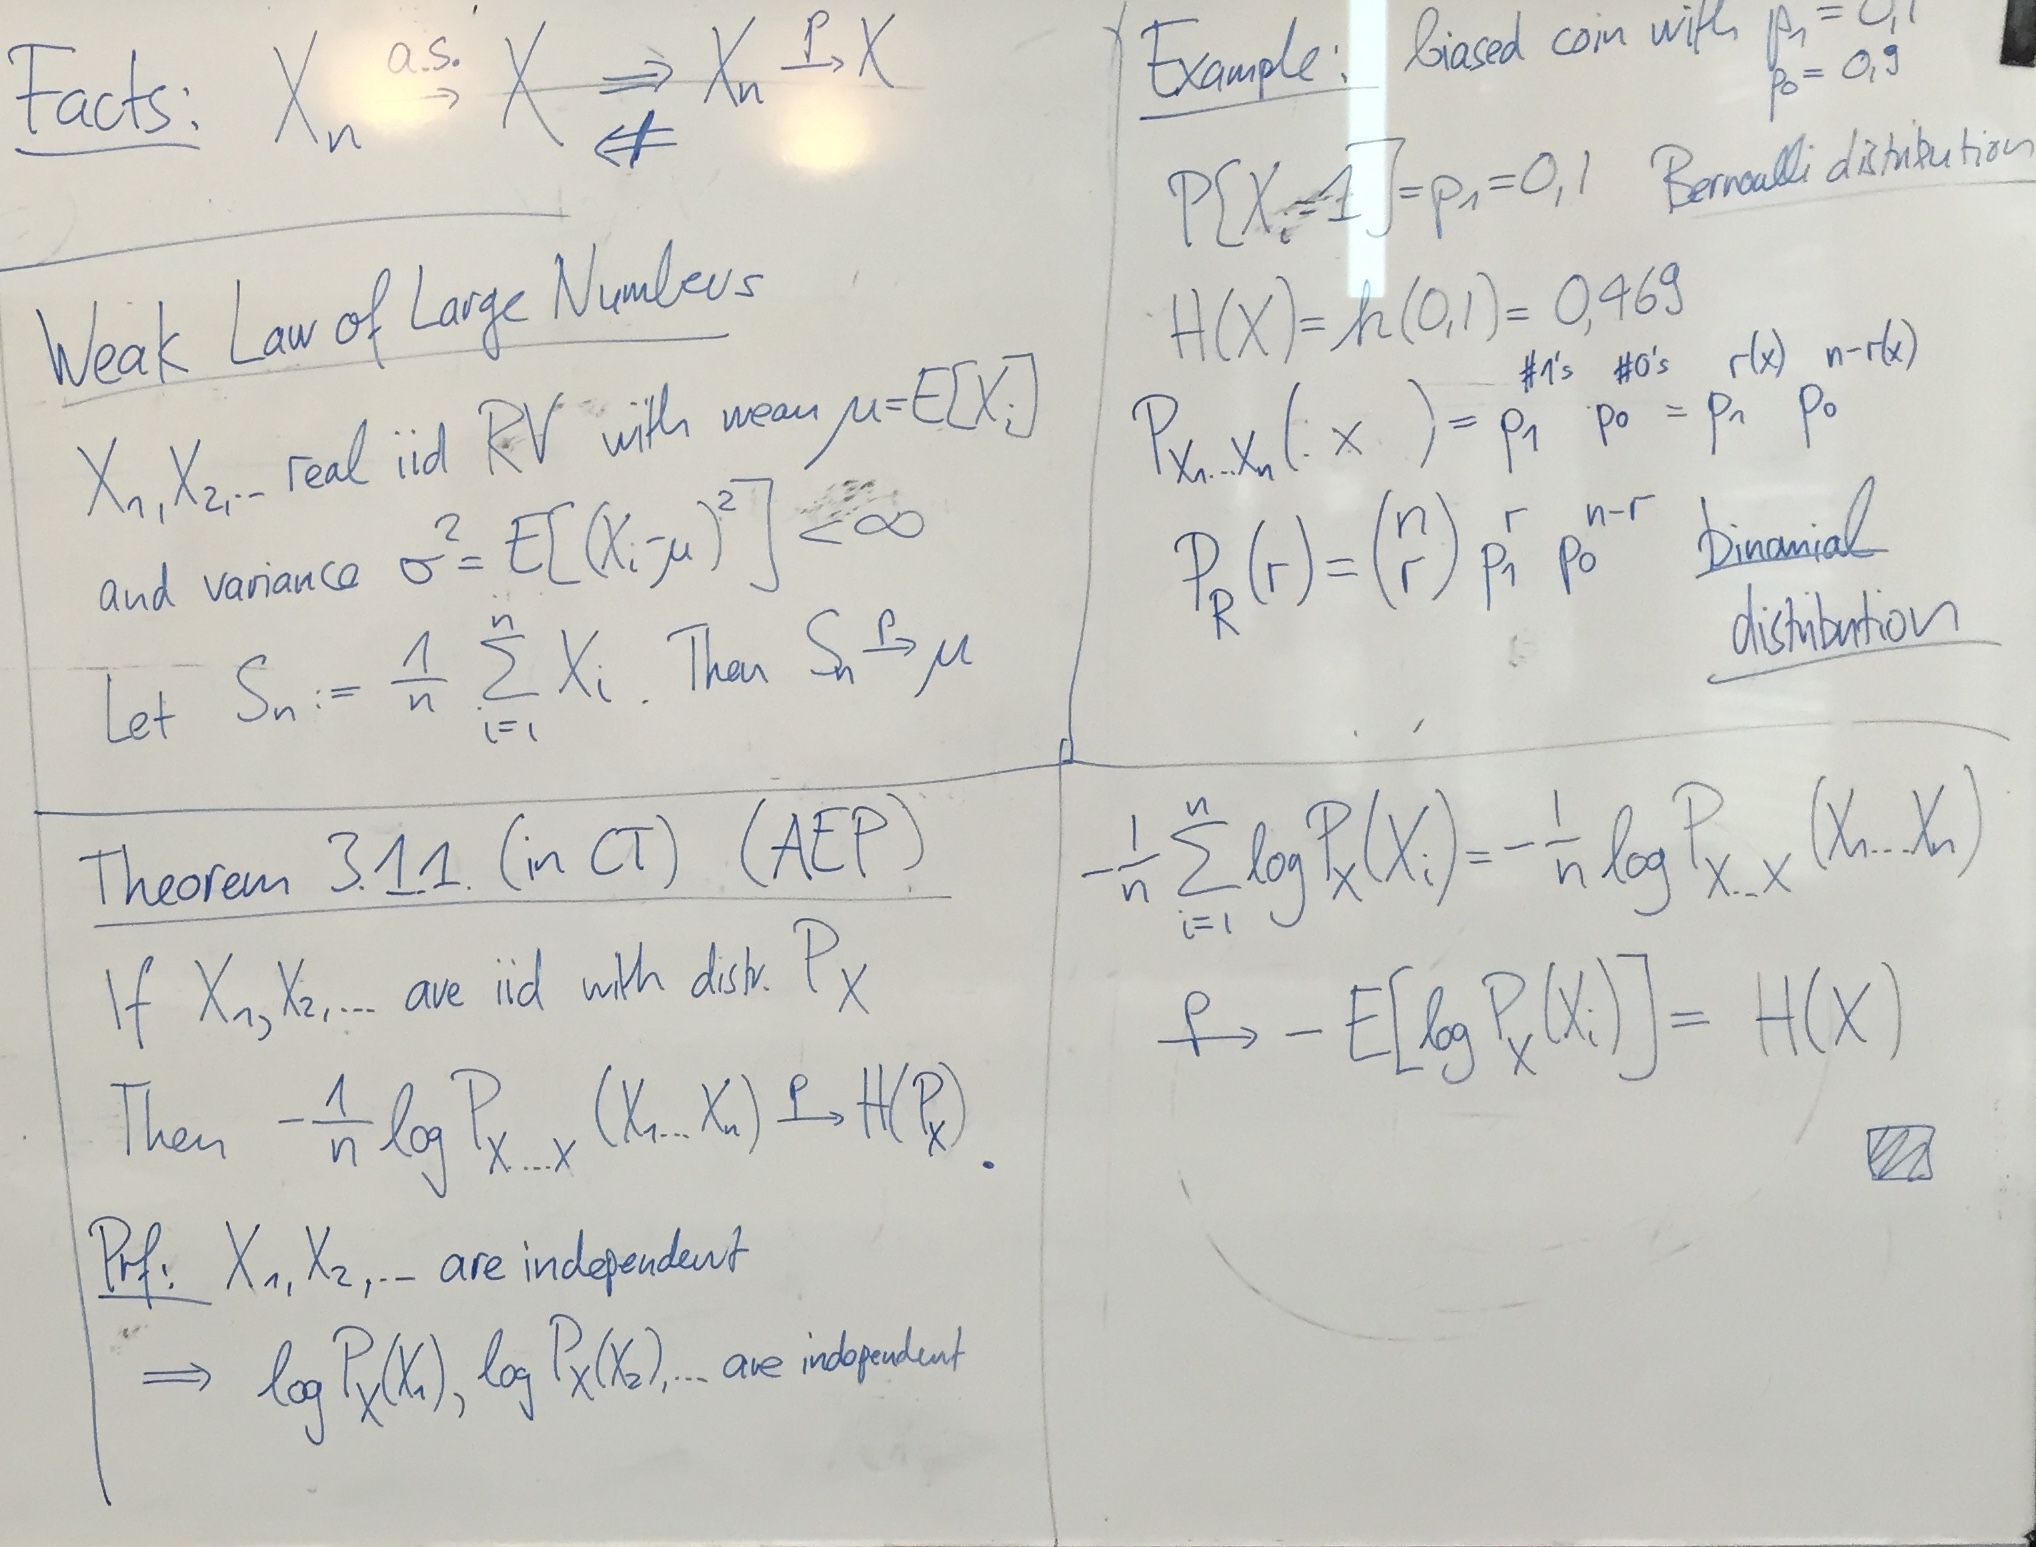 Facts: Xₙ a.s.→ X ⟹ Xₙ P→ X
⇍
Weak Law of Large Numbers
X₁, X₂,... real iid RV with mean μ=E[Xᵢ]
and variance σ² = E[(Xᵢ-μ)²] < ∞
Let Sₙ := 1/n ∑ᵢ₌₁ⁿ Xᵢ. Then Sₙ P→ μ
Theorem 3.1.1. (in CT) (AEP)
If X₁, X₂,... are iid with distr. P_X
Then -1/n log P_X...X (X₁...Xₙ) P→ H(P_X).
Prf: X₁, X₂,... are independent
⟹ log P_X(X₁), log P_X(X₂),... are independent
Example: biased coin with p₁ = 0,1
p₀ = 0,9
P[Xᵢ=1] = p₁ = 0,1 Bernoulli distribution
H(X) = h(0,1) = 0,469
P_X₁...Xₙ(x) = p₁^#1's p₀^#0's = p₁^r(x) p₀^n-r(x)
P_R(r) = (n r) p₁^r p₀^n-r binomial
distribution
-1/n ∑ᵢ₌₁ⁿ log P_X(Xᵢ) = -1/n log P_X...X (X₁...Xₙ)
P→ - E[log P_X(Xᵢ)] = H(X)